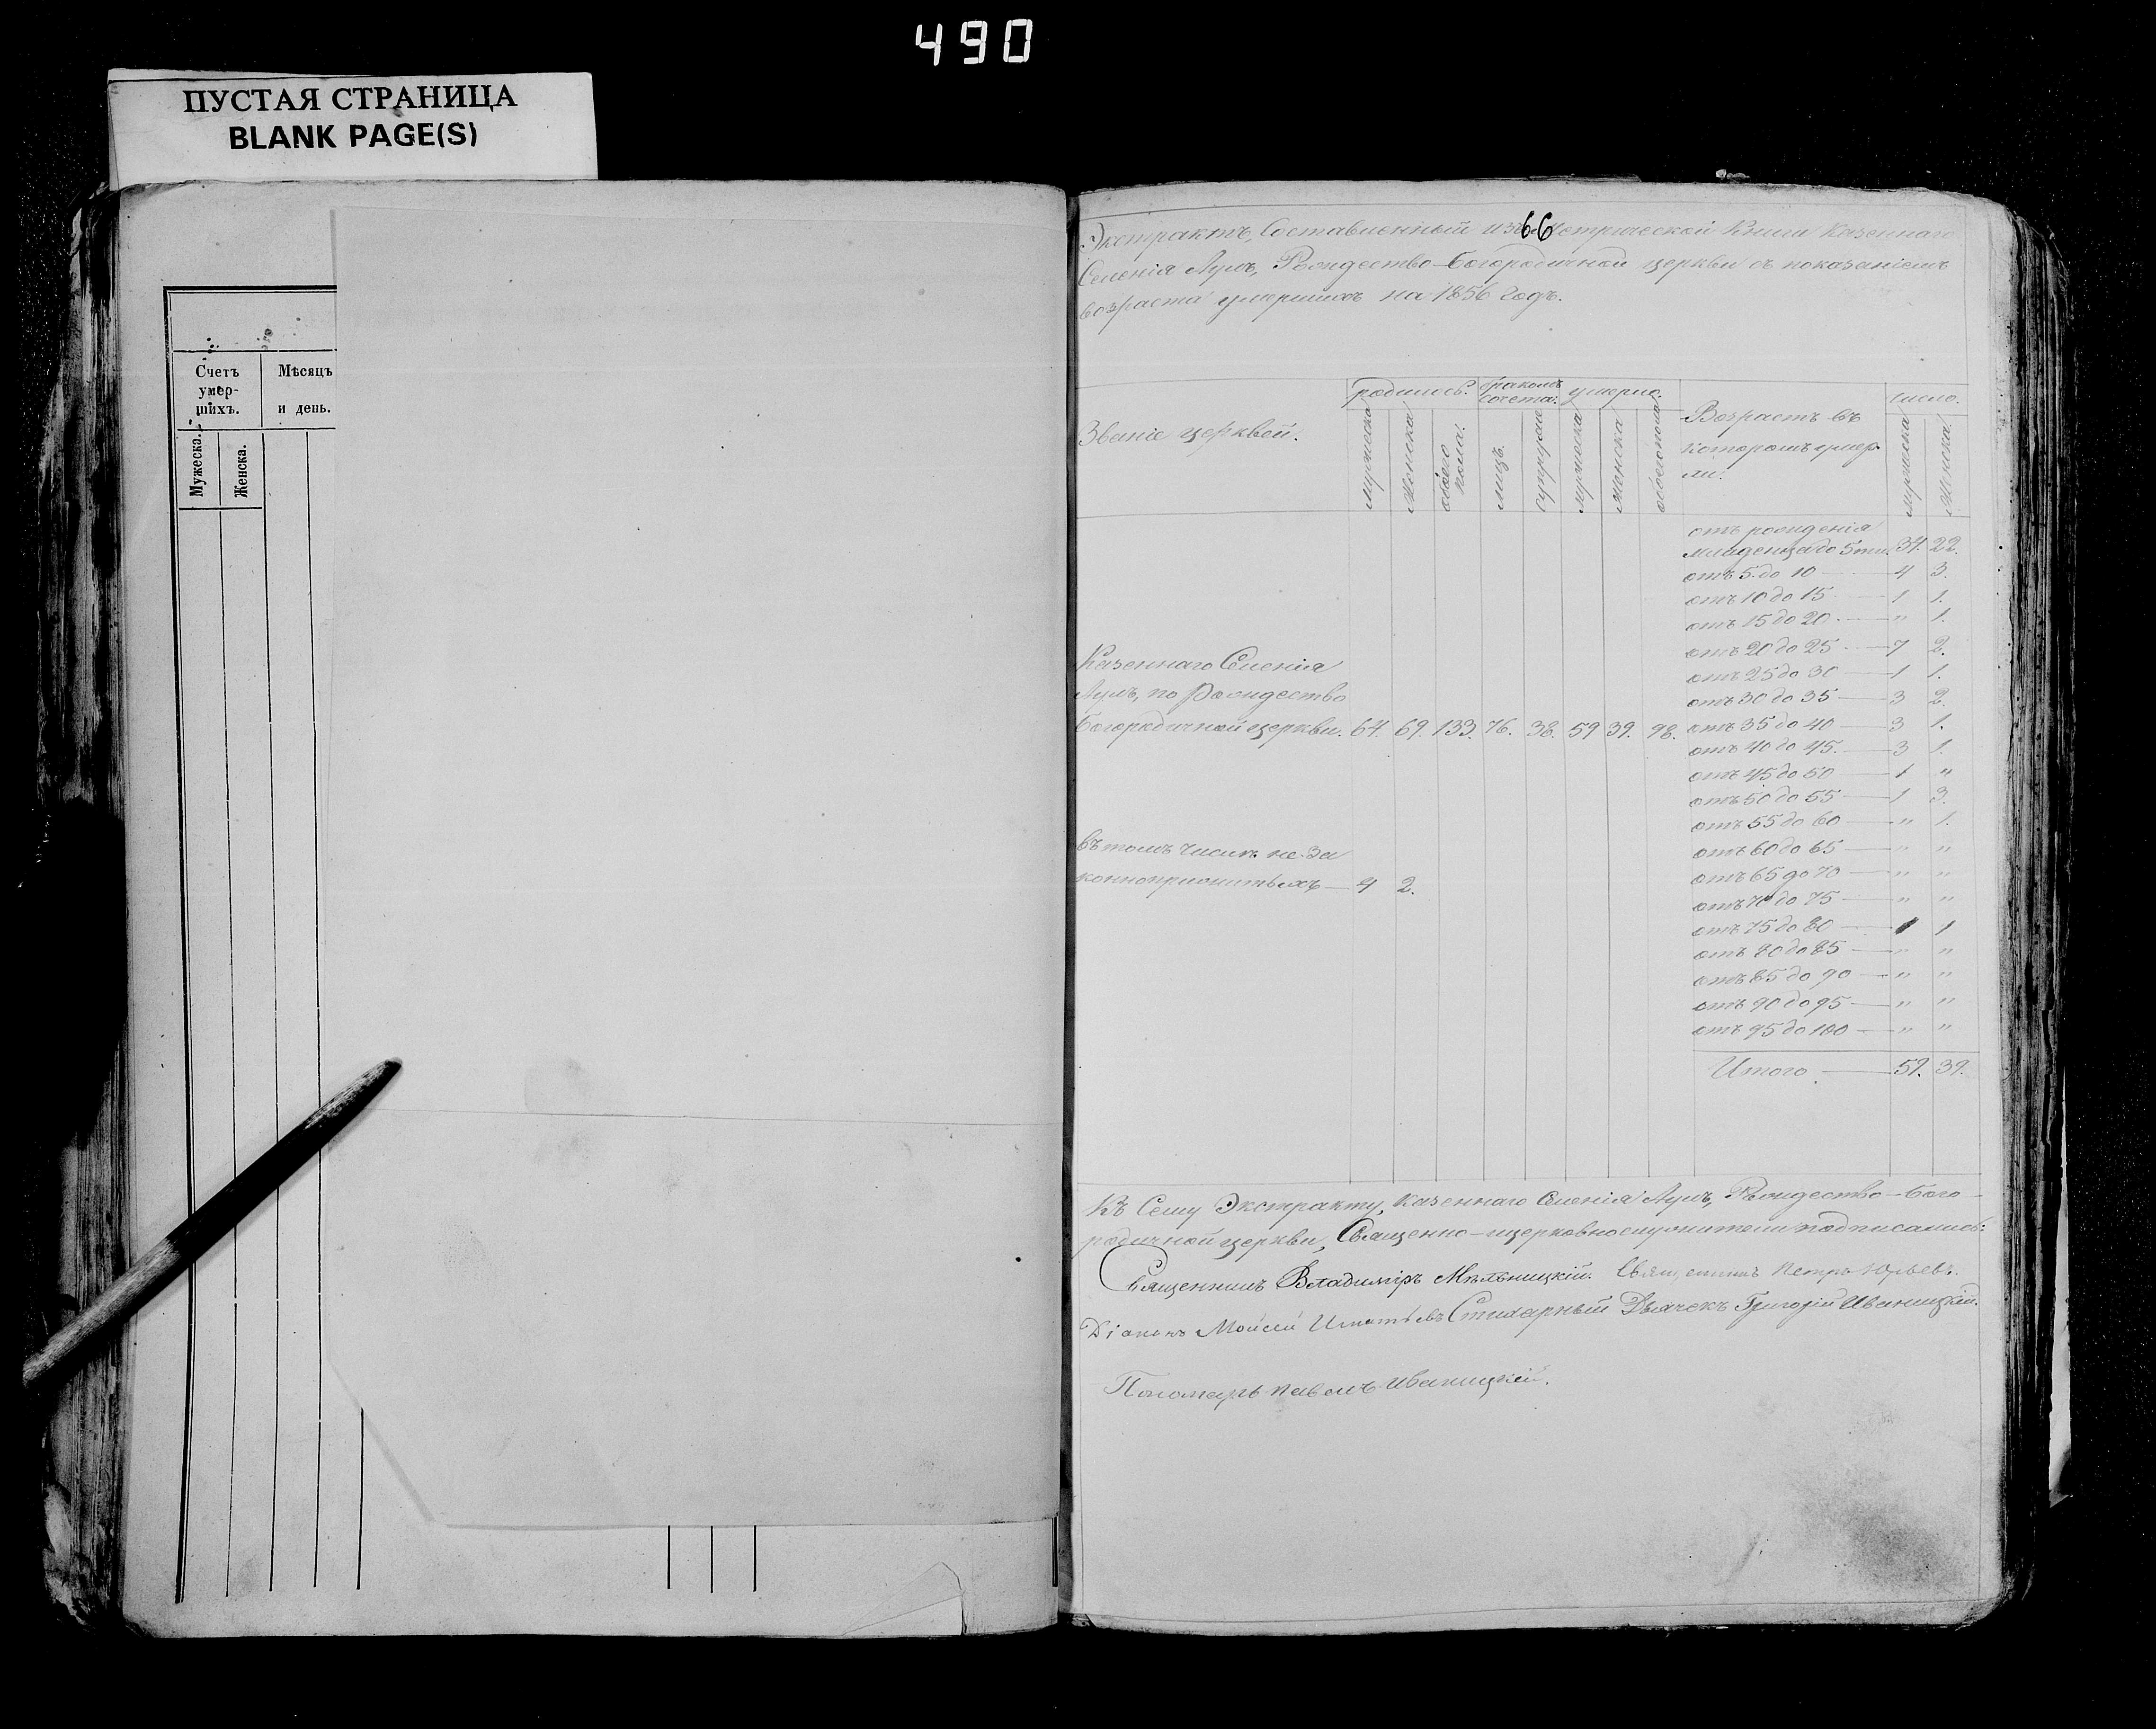 490
ПУСТАЯ СТРАНИЦА
BLANK PAGE(S)
Счетъ умер-шихъ.
Мѣсяцъ и день.
Мужеска.
Женска.
66
Экстрактъ, Составленный изъ Метрической Книги Казеннаго
Селенія Лумъ, Рождество-Богородичной церкви съ показаніемъ
возраста умершихъ на 1856 годъ.
Званіе церквей.
родилось.
бракомъ сочета:
умерло.
Возрастъ въ которомъ умер-ли.
число.
мужеска
Женска
обоего пола.
лицъ.
супруж
мужеска
женска
обоего пола
мужеска
Женска.
отъ рожденія
младенца до 5ти 34. 22.
отъ 5 до 10 4 3.
отъ 10 до 15 1 1.
отъ 15 до 20 " 1.
отъ 20 до 25 7 2.
отъ 25 до 30 1 1.
отъ 30 до 35 3 2.
Казеннаго Селенія
Лумъ, по Рождество
Богородичной церкви. 64. 69. 133. 76. 38. 59 39. 98. отъ 35 до 40 3 1.
отъ 40 до 45. 3 1.
отъ 45 до 50 1 "
отъ 50 до 55 1 3.
отъ 55 до 60 " 1.
отъ 60 до 65 " "
отъ 65 до 70 " "
отъ 70 до 75 " "
отъ 75 до 80 1 1
отъ 80 до 85 " "
отъ 85 до 90 " "
отъ 90 до 95 " "
отъ 95 до 100 " "
въ томъ числѣ не за
конноприжитыхъ 4 2.
Итого 59. 39.
Къ Сему Экстракту, Казеннаго Селенія Лумъ, Рождество-Бого-
родичной церкви, Священно-церковнослужители подписались:
Священникъ Владиміръ Мѣльницкій. Священникъ Петръ Юрьевъ.
Діаконъ Моисей Игнатьевъ Стихарный Дьячекъ Григорій Иваницкій.
Пономарь Павелъ Иваницкій.